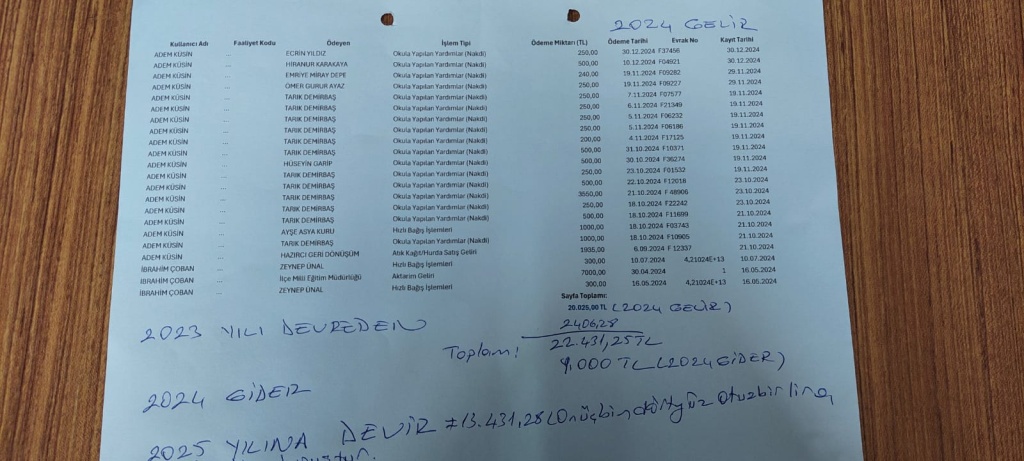 2024 GELİR
Kullanıcı Adı Faaliyet Kodu Ödeyen İşlem Tipi Ödeme Miktarı (TL) Ödeme Tarihi Evrak No Kayıt Tarihi
ADEM KÜSİN ... ECRİN YILDIZ Okula Yapılan Yardımlar (Nakdi) 250,00 30.12.2024 F37456 30.12.2024
ADEM KÜSİN ... HİRANUR KARAKAYA Okula Yapılan Yardımlar (Nakdi) 500,00 10.12.2024 F04921 30.12.2024
ADEM KÜSİN ... EMRİYE MİRAY DEPE Okula Yapılan Yardımlar (Nakdi) 240,00 19.11.2024 F09282 29.11.2024
ADEM KÜSİN ... ÖMER GURUR AYAZ Okula Yapılan Yardımlar (Nakdi) 250,00 19.11.2024 F09227 29.11.2024
ADEM KÜSİN ... TARIK DEMİRBAŞ Okula Yapılan Yardımlar (Nakdi) 250,00 7.11.2024 F07577 19.11.2024
ADEM KÜSİN ... TARIK DEMİRBAŞ Okula Yapılan Yardımlar (Nakdi) 250,00 6.11.2024 F21349 19.11.2024
ADEM KÜSİN ... TARIK DEMİRBAŞ Okula Yapılan Yardımlar (Nakdi) 250,00 5.11.2024 F06232 19.11.2024
ADEM KÜSİN ... TARIK DEMİRBAŞ Okula Yapılan Yardımlar (Nakdi) 250,00 5.11.2024 F06186 19.11.2024
ADEM KÜSİN ... TARIK DEMİRBAŞ Okula Yapılan Yardımlar (Nakdi) 200,00 4.11.2024 F17125 19.11.2024
ADEM KÜSİN ... TARIK DEMİRBAŞ Okula Yapılan Yardımlar (Nakdi) 500,00 31.10.2024 F10371 19.11.2024
ADEM KÜSİN ... HÜSEYİN GARİP Okula Yapılan Yardımlar (Nakdi) 500,00 30.10.2024 F36274 19.11.2024
ADEM KÜSİN ... TARIK DEMİRBAŞ Okula Yapılan Yardımlar (Nakdi) 250,00 23.10.2024 F01532 19.11.2024
ADEM KÜSİN ... TARIK DEMİRBAŞ Okula Yapılan Yardımlar (Nakdi) 500,00 22.10.2024 F12018 23.10.2024
ADEM KÜSİN ... TARIK DEMİRBAŞ Okula Yapılan Yardımlar (Nakdi) 3550,00 21.10.2024 F48906 23.10.2024
ADEM KÜSİN ... TARIK DEMİRBAŞ Okula Yapılan Yardımlar (Nakdi) 250,00 18.10.2024 F22242 23.10.2024
ADEM KÜSİN ... TARIK DEMİRBAŞ Okula Yapılan Yardımlar (Nakdi) 500,00 18.10.2024 F11699 21.10.2024
ADEM KÜSİN ... AYŞE ASYA KURU Hızlı Bağış İşlemleri 1000,00 18.10.2024 F03743 21.10.2024
ADEM KÜSİN ... TARIK DEMİRBAŞ Okula Yapılan Yardımlar (Nakdi) 1000,00 18.10.2024 F10905 21.10.2024
ADEM KÜSİN ... HAZIRCI GERİ DÖNÜŞÜM Atık Kağıt/Hurda Satış Geliri 1935,00 6.09.2024 F12337 21.10.2024
İBRAHİM ÇOBAN ... ZEYNEP ÜNAL Hızlı Bağış İşlemleri 300,00 10.07.2024 4,21024E+13 10.07.2024
İBRAHİM ÇOBAN ... İlçe Milli Eğitim Müdürlüğü Aktarım Geliri 7000,00 30.04.2024 1 16.05.2024
İBRAHİM ÇOBAN ... ZEYNEP ÜNAL Hızlı Bağış İşlemleri 300,00 16.05.2024 4,21024E+13 16.05.2024
Sayfa Toplamı:
20.025,00 TL (2024 GELİR)
2023 YILI DEVREDEN 2406,28
Toplam: 22.431,25 TL
2024 GİDER 9,000 TL (2024 GİDER)
2025 YILINA DEVİR 13.431,28 (Onüçbindörtyüz Otuzbir lira,